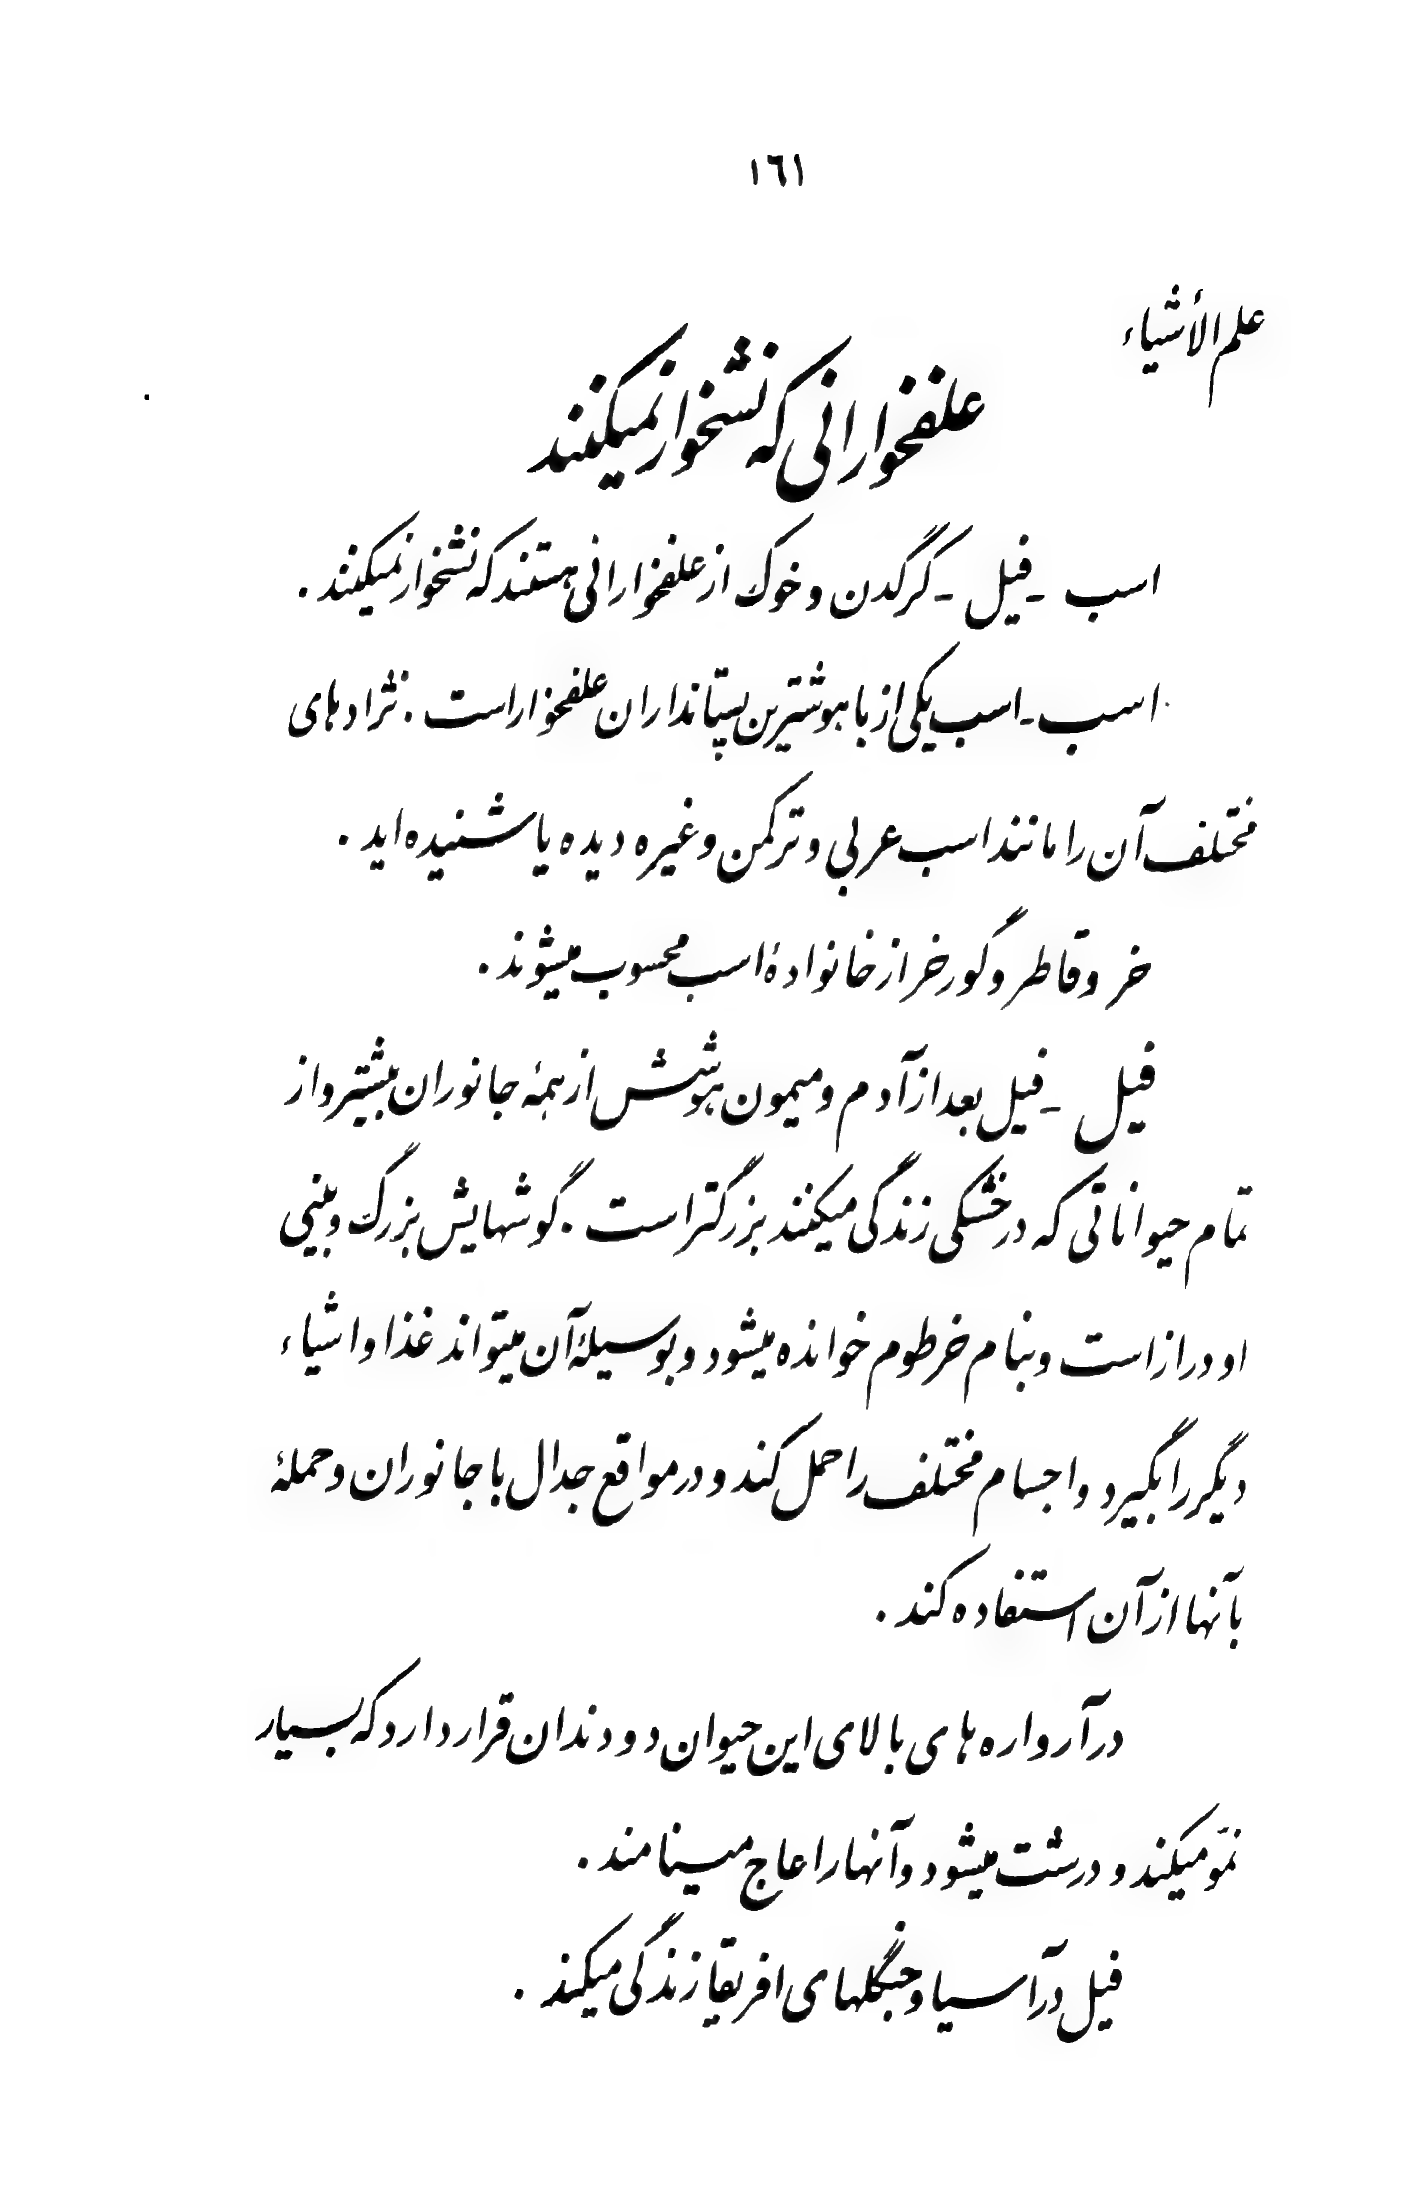 ١٦١
علم الأشیاء
علفخوارانی که نشخوار نمیکنند
اسب - فیل - کرگدن و خوک از علفخوارانی هستند که نشخوار نمیکنند .
اسب - اسب یکی از با هوشترین پستانداران علفخوار است . نژادهای
مختلف آن را مانند اسب عربی و ترکمن و غیره دیده یا شنیده اید .
خر و قاطر و گورخر از خانوادهٔ اسب محسوب میشوند .
فیل - فیل بعد از آدم و میمون هوشش از همهٔ جانوران بیشتر و از
تمام حیواناتی که در خشکی زندگی میکنند بزرگتر است . گوشهایش بزرگ و بینی
او دراز است و بنام خرطوم خوانده میشود و بوسیلهٔ آن میتواند غذا و اشیاء
دیگر را بگیرد و اجسام مختلف را حمل کند و در مواقع جدال با جانوران و حملهٔ
بآنها از آن استفاده کند .
در آرواره های بالای این حیوان دو دندان قرار دارد که بسیار
نمّو میکند و درشت میشود و آنها را عاج مینامند .
فیل در آسیا و جنگلهای افریقا زندگی میکند .